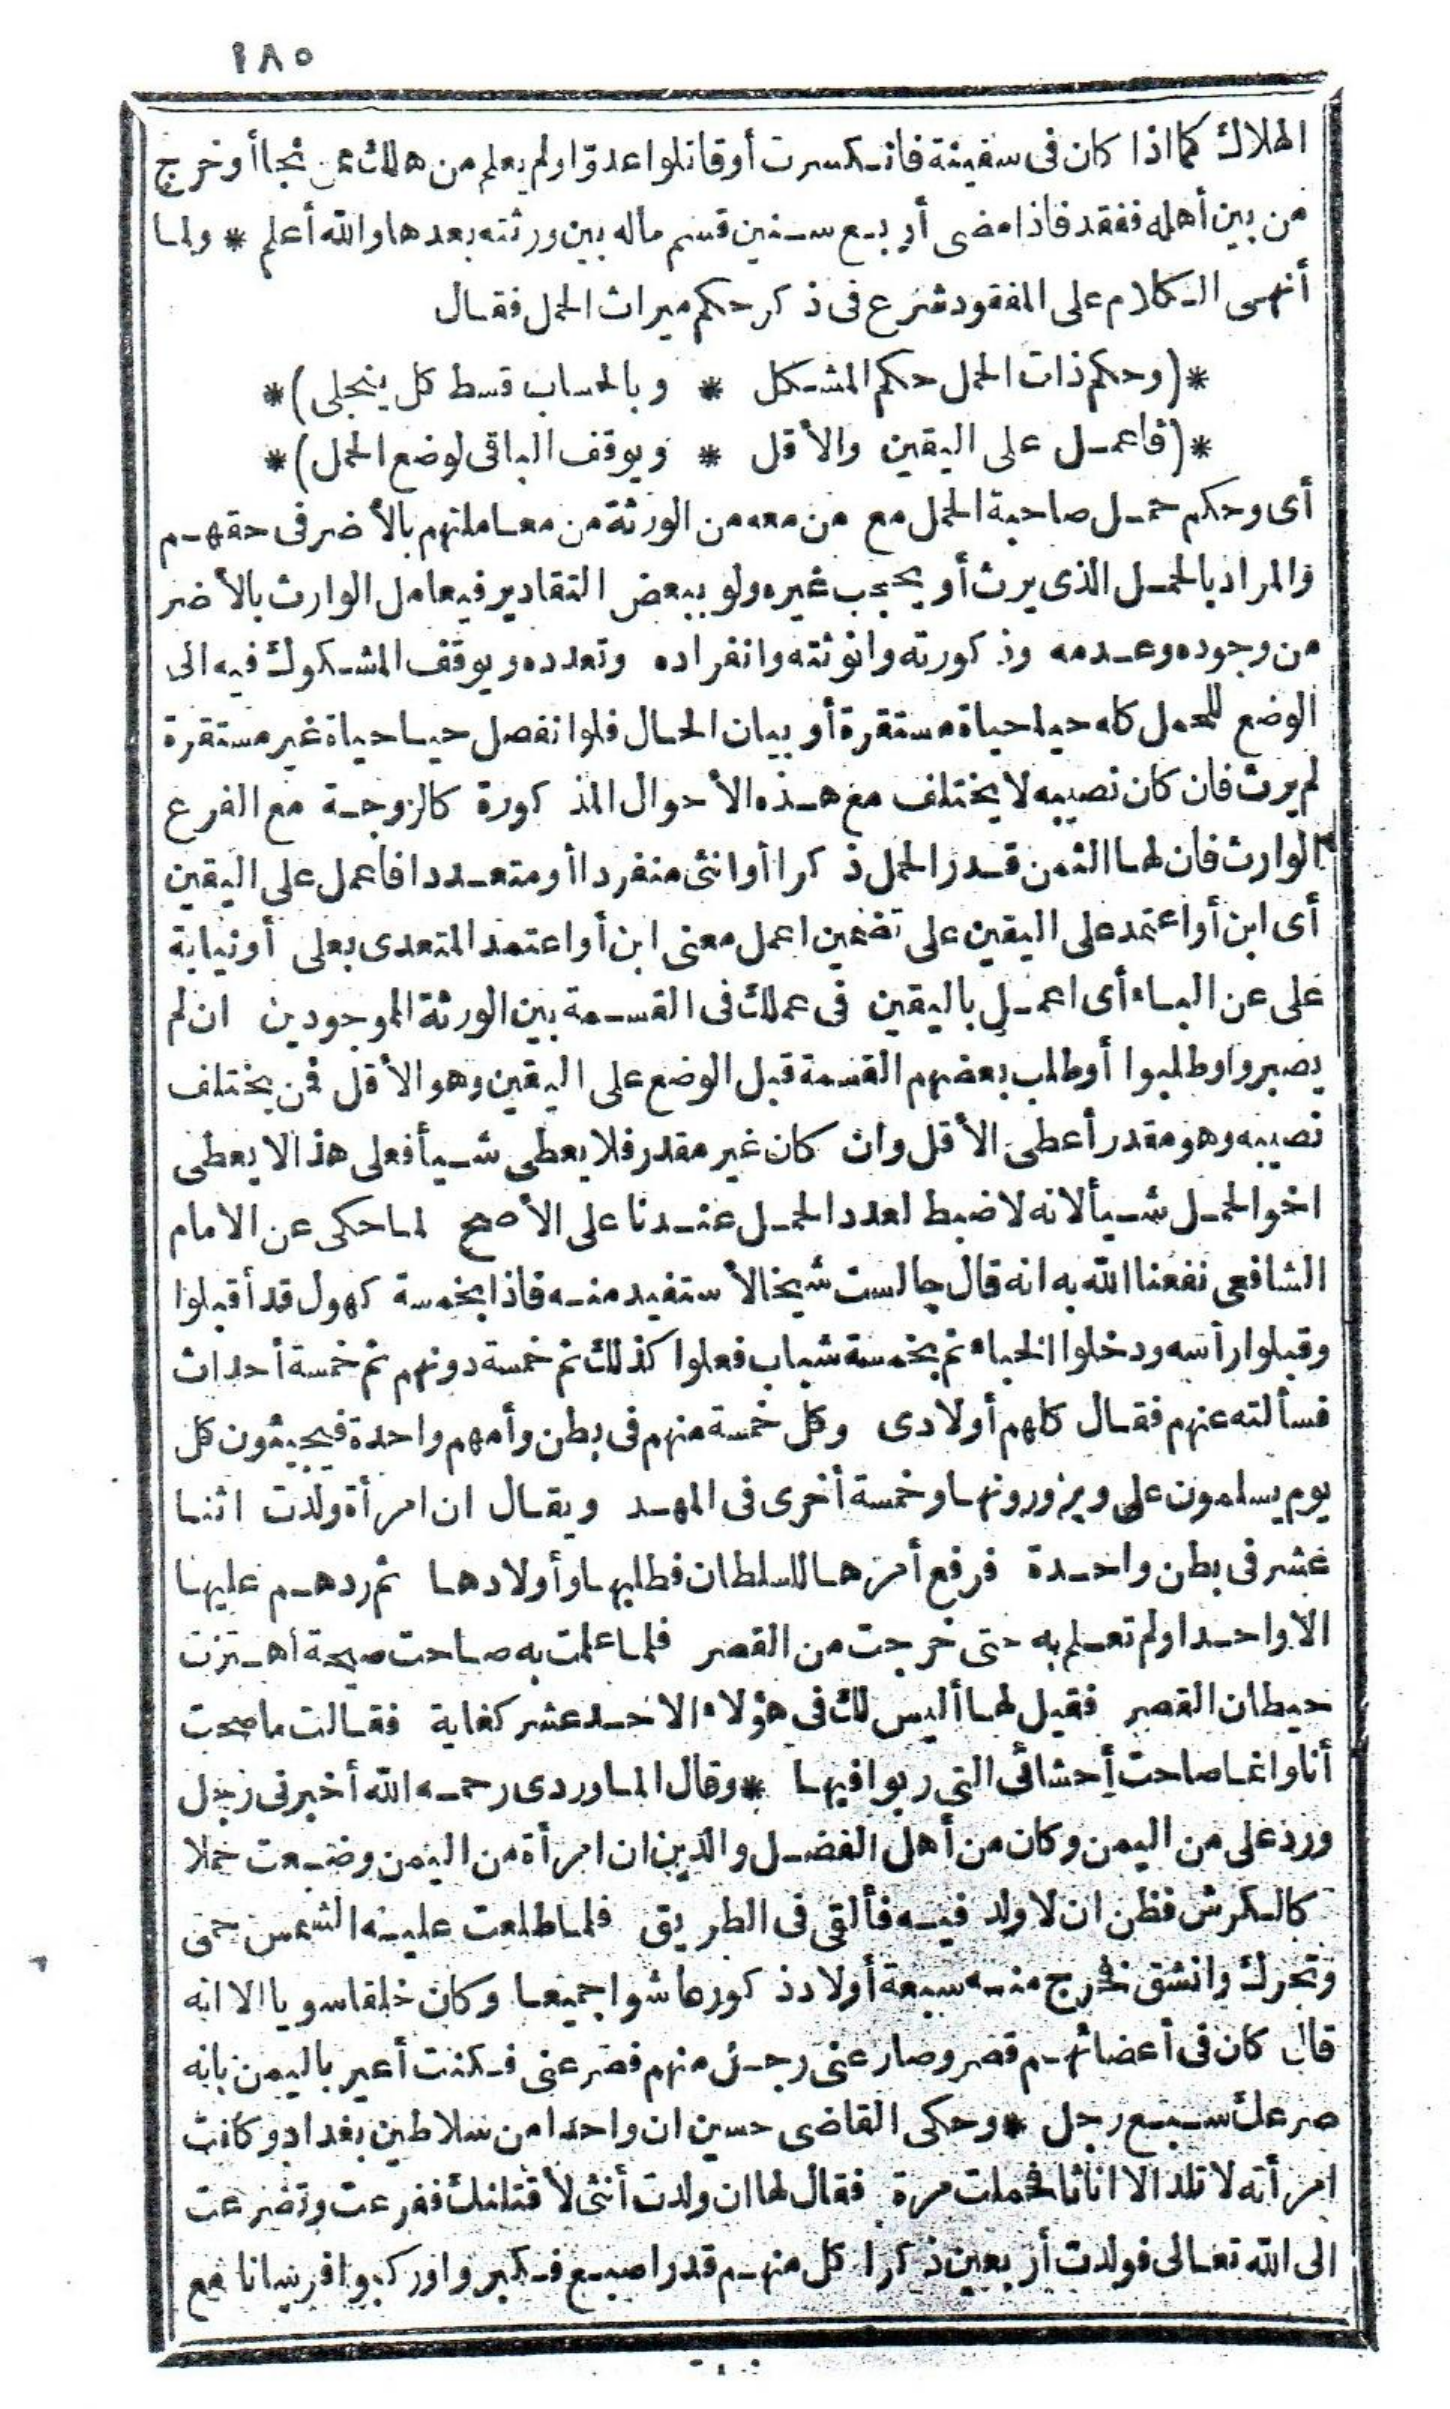 ١٨٥
الهلاك كما اذا كان فى سفينة فانكسرت أوقاتلوا عدوّا ولم يعلم من هلك ممن نجا أوخرج
من بين أهله ففقد فاذا مضى أربع سنين قسم ماله بين ورثته بعدها والله أعلم * ولما
أنهى الكلام على المفقود شرع فى ذكر حكم ميراث الحمل فقال
*(وحكم ذات الحمل حكم المشكل * وبالحساب قسط كل ينجلى)*
*(فاعمل على اليقين والأقل * ويوقف الباقى لوضع الحمل)*
أى وحكم حمل صاحبة الحمل مع من معه من الورثة من معاملتهم بالأضر فى حقهم
والمراد بالحمل الذى يرث أو يحجب غيره ولو ببعض التقادير فيعامل الوارث بالأضر
من وجوده وعدمه وذكورته وانوثته وانفراده وتعدده ويوقف المشكوك فيه الى
الوضع للحمل كله حيا حياة مستقرة أو بيان الحال فلوا نفصل حيا حياة غير مستقرة
لم يرث فان كان نصيبه لا يختلف مع هذه الأحوال المذكورة كالزوجة مع الفرع
الوارث فان لها الثمن قدر الحمل ذكرا أو انثى منفردا أو متعددا فاعمل على اليقين
أى ابن أواعتمد على اليقين على تضمين اعمل معنى ابن أواعتمد المتعدى بعلى أونيابة
على عن الباء أى اعمل باليقين فى عملك فى القسمة بين الورثة الموجودين ان لم
يصبروا وطلبوا أوطلب بعضهم القسمة قبل الوضع على اليقين وهو الأقل فمن يختلف
نصيبه وهو مقدر أعطى الأقل وان كان غير مقدر فلا يعطى شيأ فعلى هذا لا يعطى
اخوا لحمل شيأ لانه لا ضبط لعدد الحمل عندنا على الأصح لما حكى عن الامام
الشافعى نفعنا الله به انه قال جالست شيخا لأستفيد منه فاذا بخمسة كهول قد أقبلوا
وقبلوا رأسه ودخلوا الخباء ثم بخمسة شباب فعلوا كذلك ثم خمسة دونهم ثم خمسة أحداث
فسألته عنهم فقال كلهم أولادى وكل خمسة منهم فى بطن وأمهم واحدة فيجيئون كل
يوم يسلمون على ويزورونها وخمسة أخرى فى المهد ويقال ان امرأة ولدت اثنا
عشر فى بطن واحدة فرفع أمرها للسلطان فطلبها وأولادها ثم ردهم عليها
الا واحدا ولم تعلم به حتى خرجت من القصر فلما علمت به صاحت صيحة اهتزت
حيطان القصر فقيل لها أليس لك فى هؤلاء الاحد عشر كفاية فقالت ما صحت
أنا وانما صاحت أحشائى التى ربوا فيها * وقال الماوردى رحمه الله أخبرنى رجل
ورد على من اليمن وكان من أهل الفضل والدين ان امرأة من اليمن وضعت حملا
كالكرش فظن ان لا ولد فيه فألقى فى الطريق فلما طلعت عليه الشمس حمى
وتحرك وانشق فخرج منه سبعة أولاد ذكور عاشوا جميعا وكان خلقا سويا الا انه
قال كان فى أعضائهم قصر وصارعنى رجل منهم فصرعنى فكنت أعير باليمن بانه
صرعك سبع رجل * وحكى القاضى حسين ان واحدا من سلاطين بغداد وكانت
امرأته لا تلد الا اناثا فحملت مرة فقال لها ان ولدت أنثى لأقتلنك ففزعت وتضرعت
الى الله تعالى فولدت أربعين ذكرا كل منهم قدر اصبع فكبروا وركبوا فرسانا مع